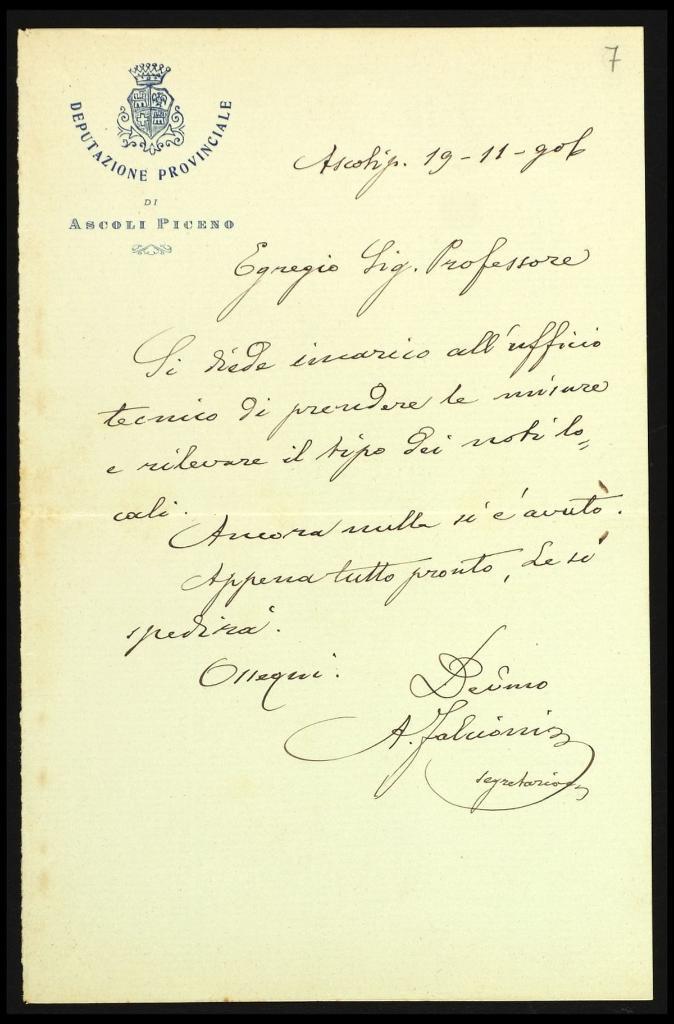 7
DEPUTAZIONE PROVINCIALE
DI
ASCOLI PICENO
Ascolip. 19-11-906
Egregio Sig. Professore
Si diede incarico all'ufficio
tecnico di prendere le misure
e rilevare il tipo dei noti lo=
cali.
Ancora nulla si è avuto.
Appena tutto pronto, Le si
spedirà.
Ossequi.
Devmo
A. Falcioni
segretario